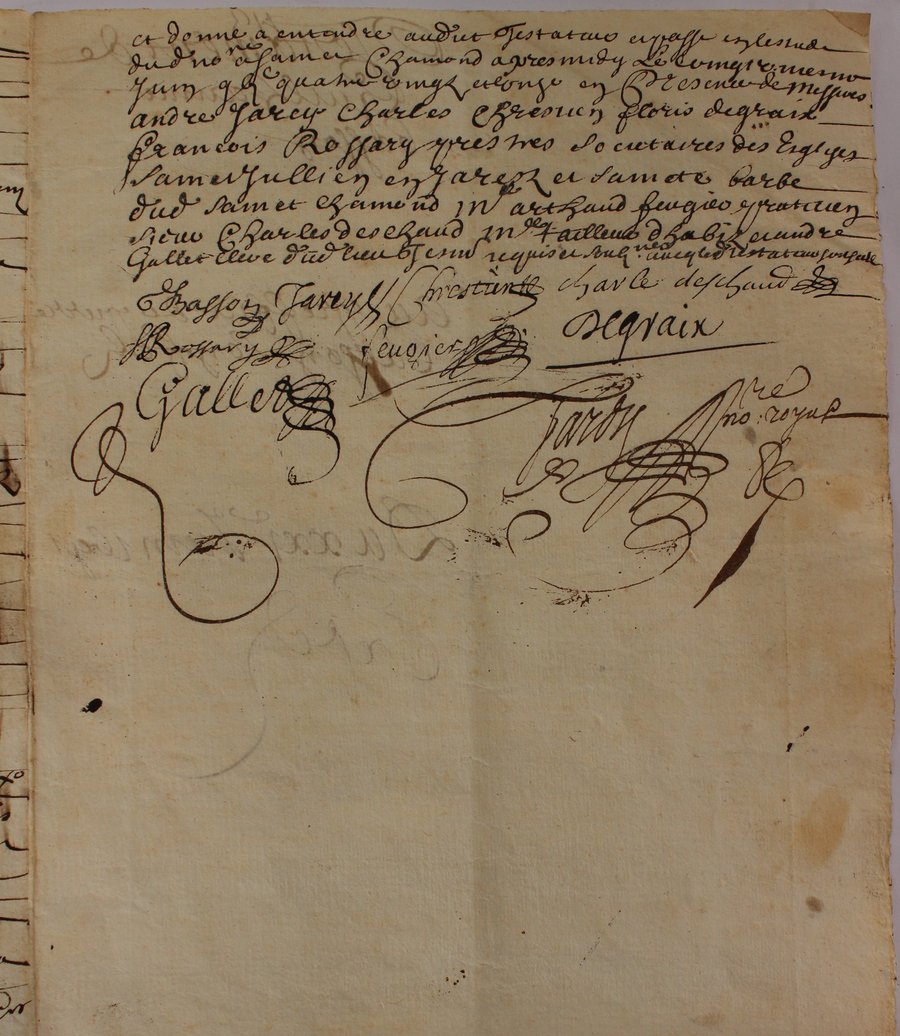 et donne a entendre audict Testateur et passe en lestude
dud no.re a Sainct Chamond apres midy Le vingtroiesme
Juin quatre vingt et onze en Presence de Messires
andre Jarcy Charles Chrestien floris degraix
francois Rossary prestres Societaires des Esglises
Sainct Jullien en Jarest et Saincte barbe
dud Sainct Chamond m.e arthaud feugier praticien
sieur Charles deschaud m.e tailleur dhabis et andre
Gallet Clerc dud lieu Tesm requis et soub.nes avec led testateur
Chasson Jarcy Chrestien charle deschaud
Rossary feugier Degraix
Gallet
Jardy no.re royal